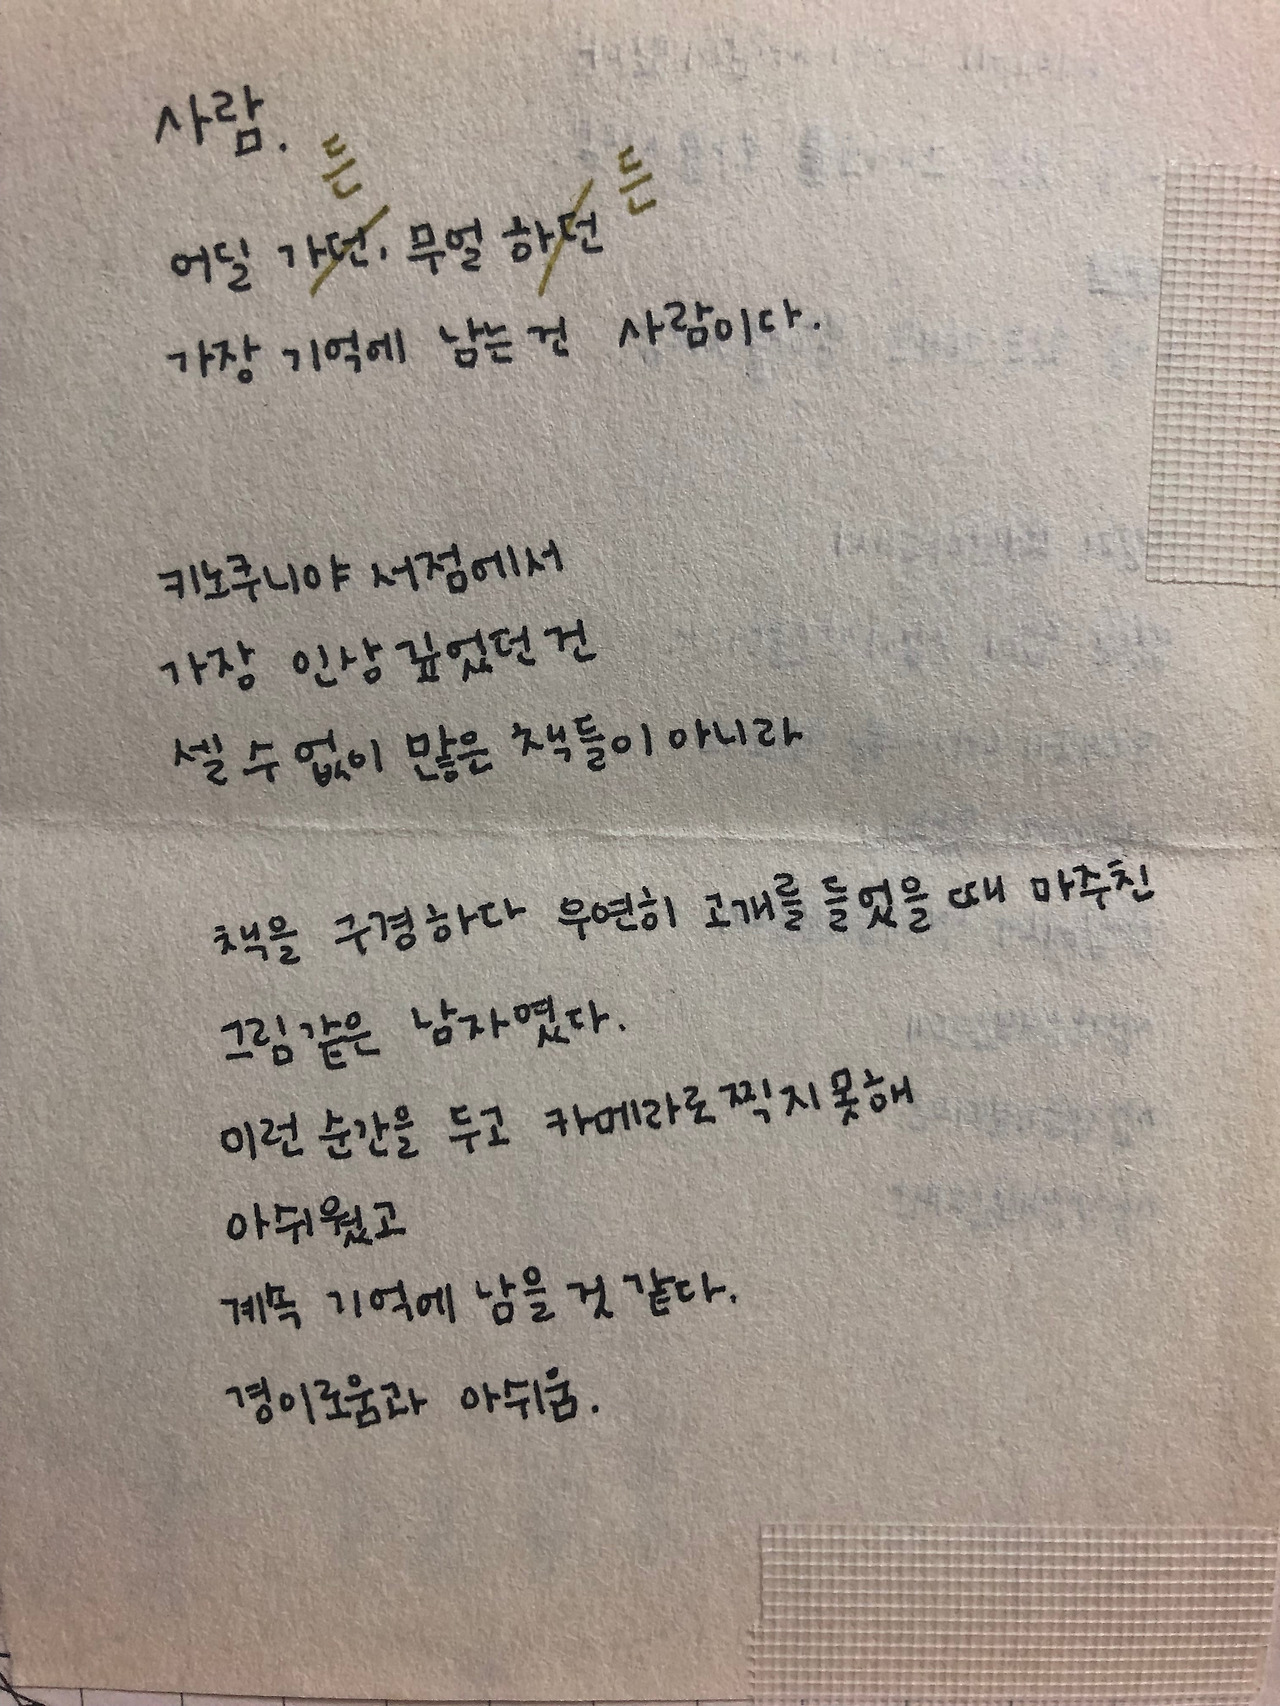 사람.
든 든
어딜 가던, 무얼 하던
가장 기억에 남는 건 사람이다.
키노쿠니야 서점에서
가장 인상 깊었던 건
셀 수 없이 많은 책들이 아니라
책을 구경하다 우연히 고개를 들었을 때 마주친
그림같은 남자였다.
이런 순간을 두고 카메라로 찍지 못해
아쉬웠고
계속 기억에 남을 것 같다.
경이로움과 아쉬움.